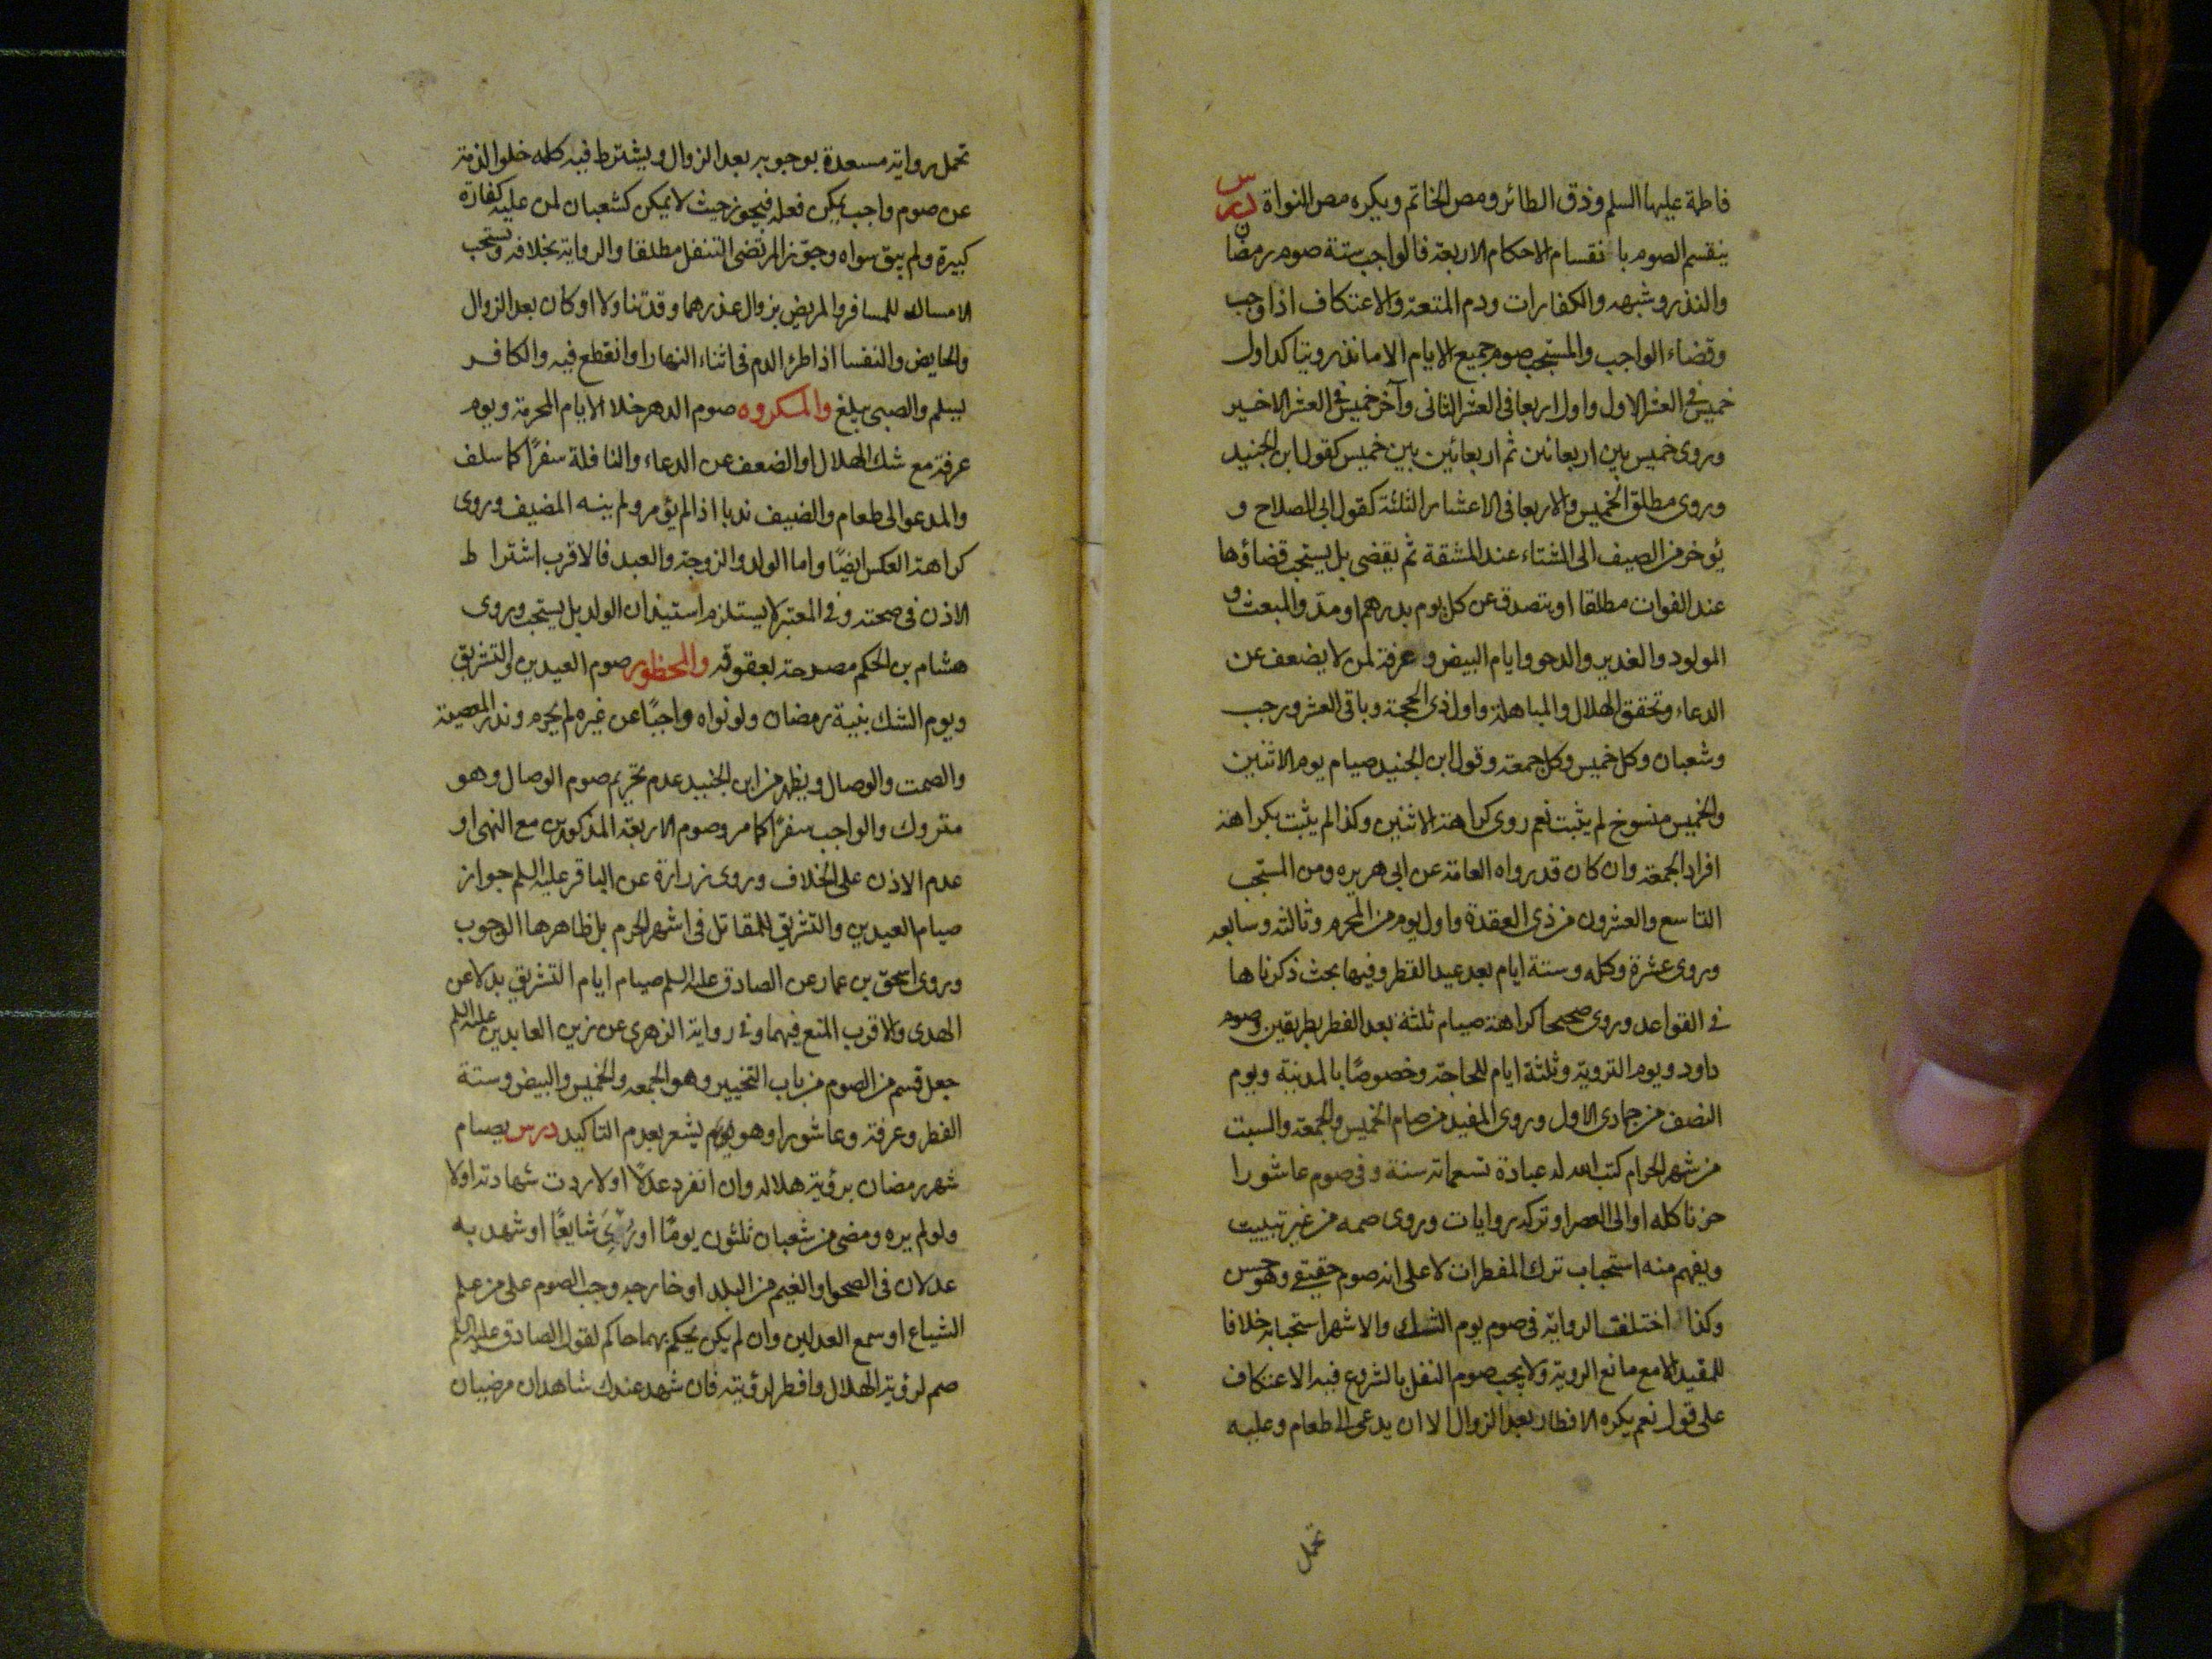 فاطمة عليها السلم وذق الطائر ومص الخاتم ويكره مص النواة درس
ينقسم الصوم بانقسام الاحكام الاربعة فالواجب ستة صوم رمضان
والنذر وشبهه والكفارات ودم المتعة والاعتكاف اذا وجب
وقضاء الواجب والمستحب صوم جميع الايام الا ما نذر ويتاكد اول
خميس في العشر الاول واول اربعا في العشر الثانى وآخر خميس في العشر الاخير
وروى خميس بين اربعائين ثم اربعائين بين خميس كقول ابن الجنيد
وروى مطلق الخميس والاربعا فى الاعشار الثلثة كقول ابى الصلاح و
يؤخر من الصيف الى الشتاء عند المشقة ثم يقضى بل يستحب قضاؤها
عند الفوات مطلقا او يتصدق عن كل يوم بدرهم او مد والمبعث و
المولود والغدير والدحو وايام البيض و عرفة لمن لا يضعف عن
الدعاء وتحقق الهلال والمباهلة واول ذى الحجة وباقى العشر ورجب
وشعبان وكل خميس وكل جمعة وقول ابن الجنيد صيام يوم الاثنين
والخميس منسوخ لم يثبت نعم روى كراهة الاثنين وكذا لم يثبت بكراهة
افراد الجمعة وان كان قد رواه العامة عن ابى هريره ومن المستحب
التاسع والعشرون من ذى العقدة واول يوم من المحرم وثالثه وسابعه
وروى عشرة وكله وستة ايام بعد عيد الفطر وفيها بحث ذكرناها
في القواعد وروى صحيحا كراهة صيام ثلثة بعد الفطر بطريقين وصوم
داود ويوم التروية وثلثة ايام للحاجة وخصوصًا بالمدينة ويوم
النصف من جمادى الاول وروى المفيد من صام الخميس والجمعة والسبت
من شهر الحرام كتب الله له عبادة تسعمائة سنة وفى صوم عاشورا
حزنا كله او الى العصر او تركه روايات وروى صمه من غير تبييت
ويفهم منه استحباب ترك المفطرات لا على انه صوم حقيقى وهو حسن
وكذا اختلفت الرواية فى صوم يوم الشك والاشهر استحبابه خلافا
للمفيد الا مع مانع الروية ولا يجب صوم النفل بالشروع فيه الا الاعتكاف
على قول نعم يكره الافطار بعد الزوال الا ان يدعى الى طعام وعليه
تحمل
تحمل رواية مسعدة بوجوبه بعد الزوال ويشترط فيه كله خلو الذمة
عن صوم واجب يمكن فعله فيجوز حيث لا يمكن كشعبان لمن عليه كفارة
كبيرة ولم يبق سواه وجوز المرتضى التنفل مطلقا والرواية بخلافه ويستحب
الامساك للمسافر والمريض بزوال عذرهما وقد تناولا او كان بعد الزوال
والحايض والنفسا اذا طرئ الدم فى اثناء النهار او انقطع فيه والكافر
يسلم والصبى يبلغ والمكروه صوم الدهر خلا الايام المحرمة ويوم
عرفة مع شك الهلال او الضعف عن الدعاء والنافلة سفرًا كما سلف
والمدعو الى طعام والضيف ندبا اذا لم يؤمر ولم ينه المضيف وروى
كراهة العكس ايضًا واما الولد والزوجة والعبد فالاقرب اشتراط
الاذن فى صحته وفى المعتبر لا يستلزم استيذان الولد بل يستحب وروى
هشام بن الحكم مصرحة بعقوقه والمحظور صوم العيدين والتشريق
ويوم الشك بنية رمضان ولو نواه واجبًا عن غيره لم يحرم ونذر المعصية
والصمت والوصال ويظهر من ابن الجنيد عدم تحريم صوم الوصال وهو
متروك والواجب سفرًا كما مر وصوم الاربعة المذكورين مع النهى او
عدم الاذن على الخلاف وروى زرارة عن الباقر عليه السلم جواز
صيام العيدين والتشريق للمقاتل فى اشهر الحرم بل ظاهرها الوجوب
وروى اسحق بن عمار عن الصادق عليه السلم صيام ايام التشريق بدلا عن
الهدى والاقرب المنع فيهما وفى رواية الزهرى عن زين العابدين عليه السلم
جعل قسم من الصوم من باب التخيير وهو الجمعة والخميس والبيض وستة
الفطر وعرفة وعاشورا وهو يشعر بعدم التاكيد درس يصام
شهر رمضان برؤية هلاله وان انفرد عدلًا او لا ردت شهادته او لا
ولو لم يره ومضى من شعبان ثلثون يومًا او رُئِىَ شايعًا او شهد به
عدلان فى الصحو او الغيم من البلد او خارجه وجب الصوم على من علم
الشياع او سمع العدلين وان لم يكن يحكم بهما حاكم لقول الصادق عليه السلم
صم لرؤية الهلال وافطر لرؤيته فان شهد عندك شاهدان مرضيان